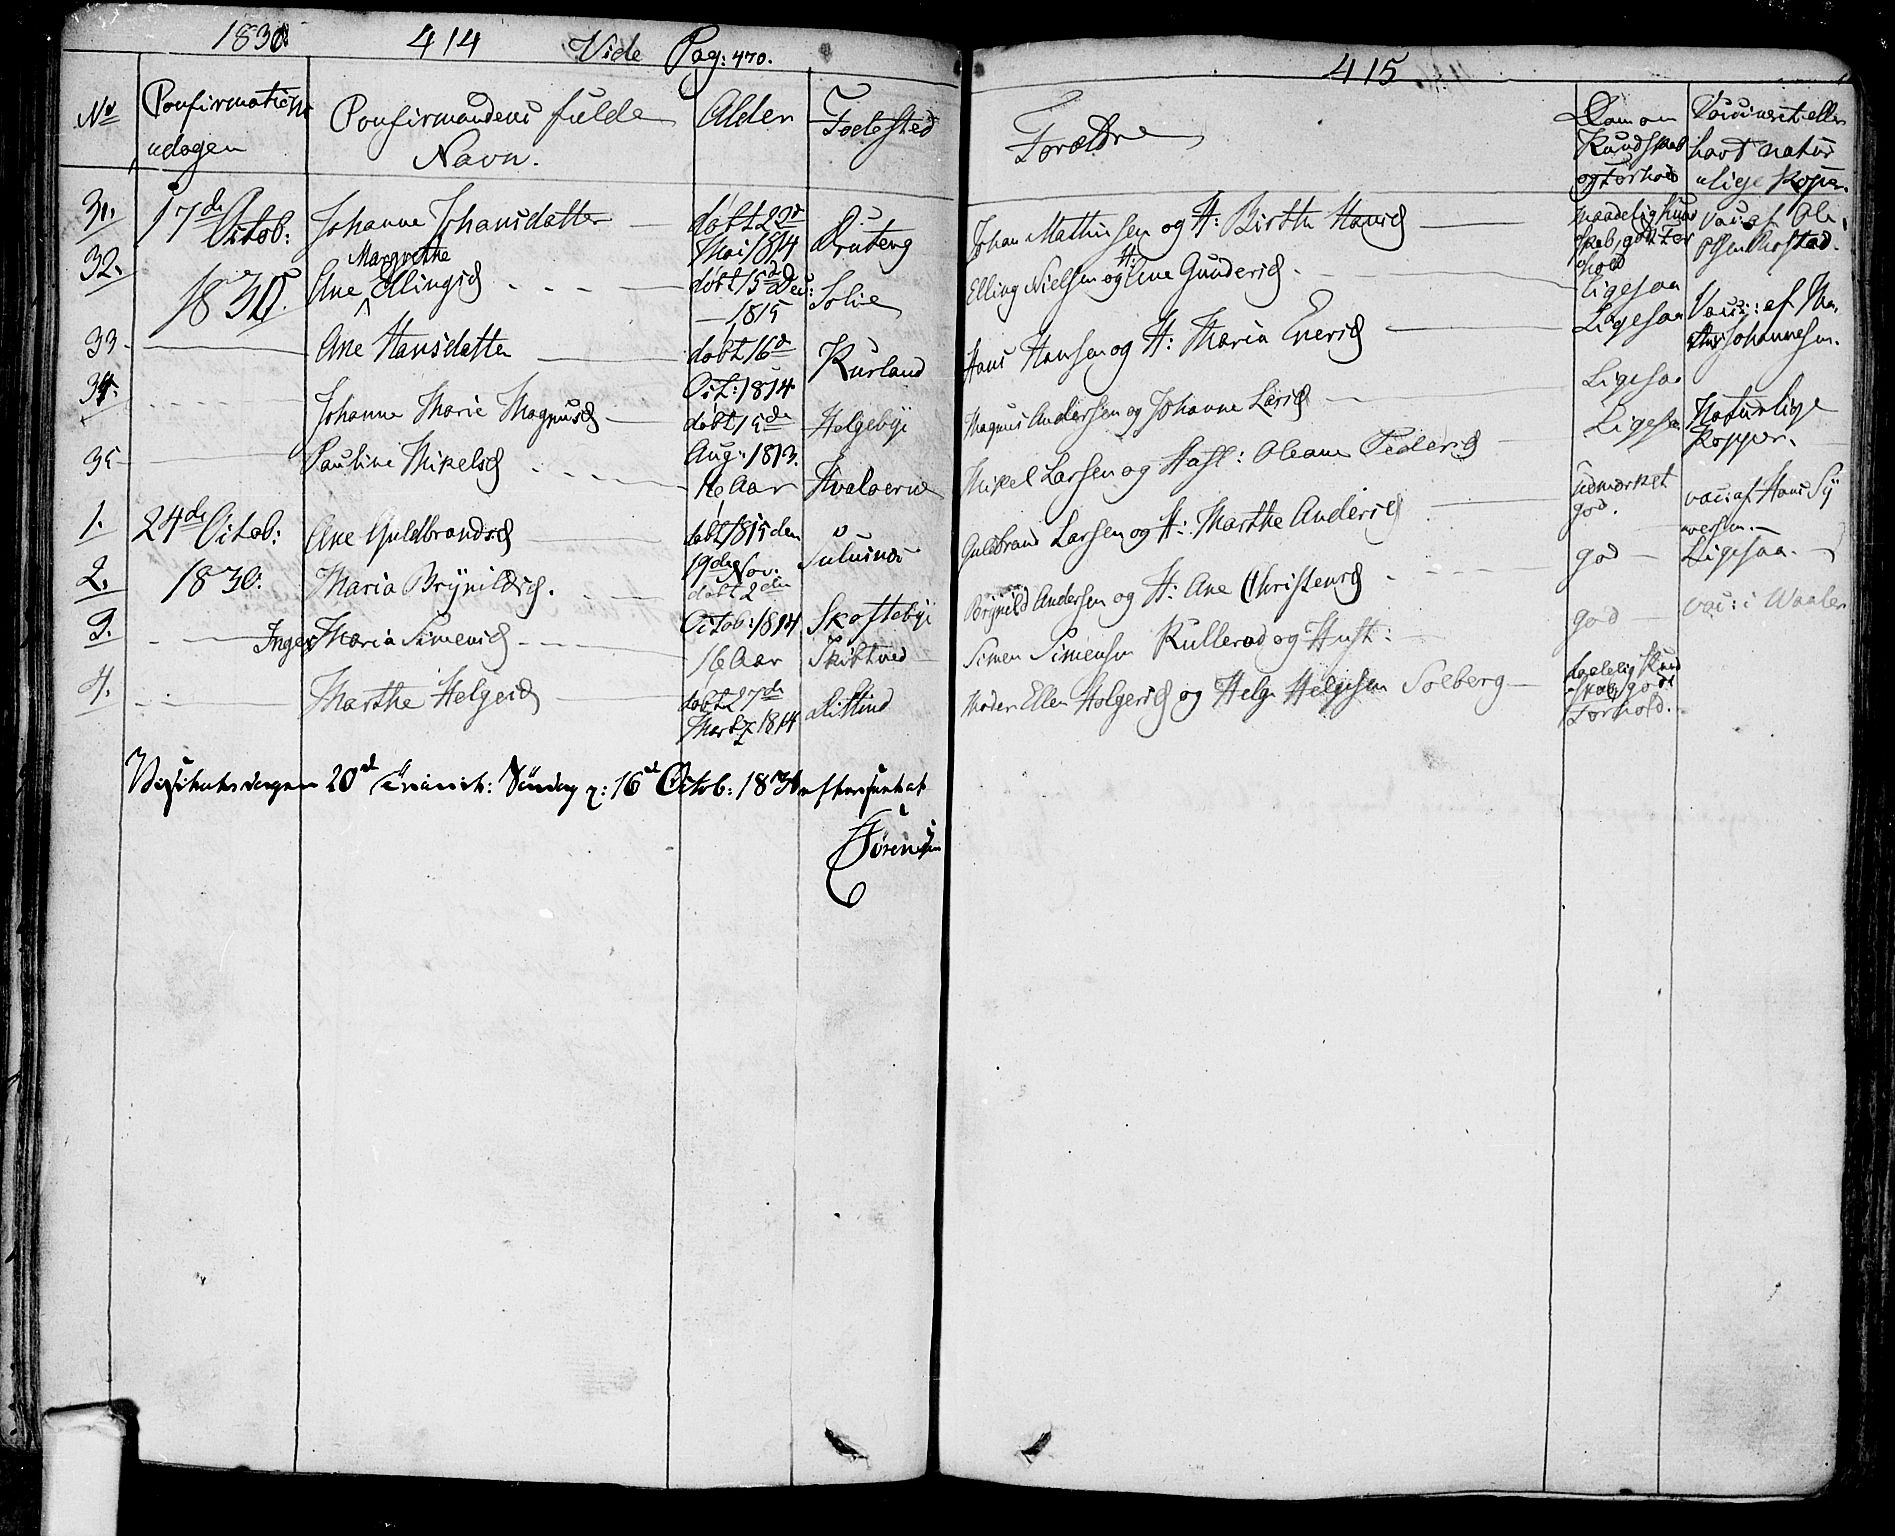 1830 414 Vide Pag: 470.
No Confirmations Confirmandens fulde Alder Fødested
dagen Navn.
31. 17de Octob: Johanne Johansdatter døbt 22d
Mai 1814
32. 1830. Ane Margrethe Ellingsd døbt 15de Dec: Solie
1815
33 Ane Hansdatter døbt 16d Kurland
Oct: 1814
34. Johanne Marie Magnusd døbt 15de Helgebye
Aug: 1813.
35 Pauline Mikelsd 16 Aar Hvaløerne
1. 24de Octob: Ane Guldbrandsd døbt 1815 den
19de Nov.
2. 1830. Maria Brynildsd. døbt 2den
Octob: 1814 Skoftebye
3. Inger Maria Simensd 16 Aar Skibtved
4. Marthe Helgesd døbt 27de
Martz 1814
Visitatsdagen 20d Trinit: Søndag : 16d Octob: 1831 efterseet at
Sørensen
415
Forældre Dom om Vaccineret eller
Kundskab havt natur
og Forhold lige Kopper.
Johan Mathiesen og H: Birthe Hansd maadelig Kund Vac: af Ole
skab, godt For Olsen
hold
Elling Nielsen og H: Ane Gundersd ligesaa
Hans Hansen og H: Maria Enersd Ligesaa Vacc: af Ma
this Johannesen.
Magnus Andersen og Johanne Larsd Ligesaa
Mikel Larsen og Hust: Oleane Pedersd Ligesaa Naturlige
Kopper.
Guldbrand Larsen og H: Marthe Andersd udmærket vac: af Hans Sy
god. versen.
Brynild Andersen og H: Ane Christensd god Ligesaa.
Simen Simensen Kullerød og Hust: god vac: i Waaler
Moder Ellen Holgersd og Helge Helgesen Solberg taalelig Kund
skab, godt
Forhold.